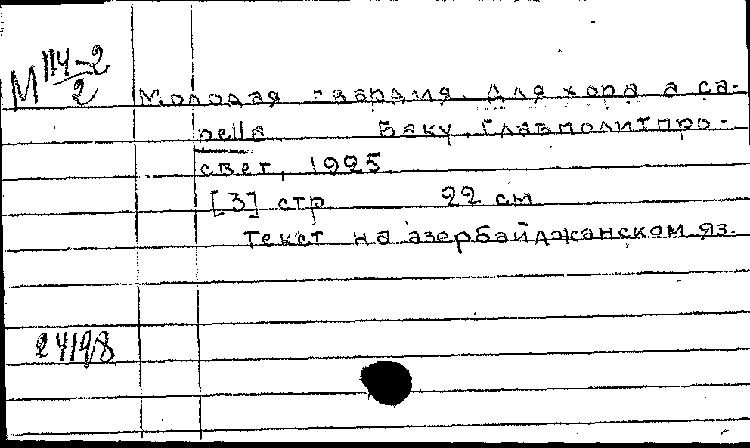 М 114-2/2
Молодая гвардия. Для хора a ca-
pella Баку, Главполитпро-
свет, 1925
[3] стр 22 см
Текст на азербайджанском яз.
24198